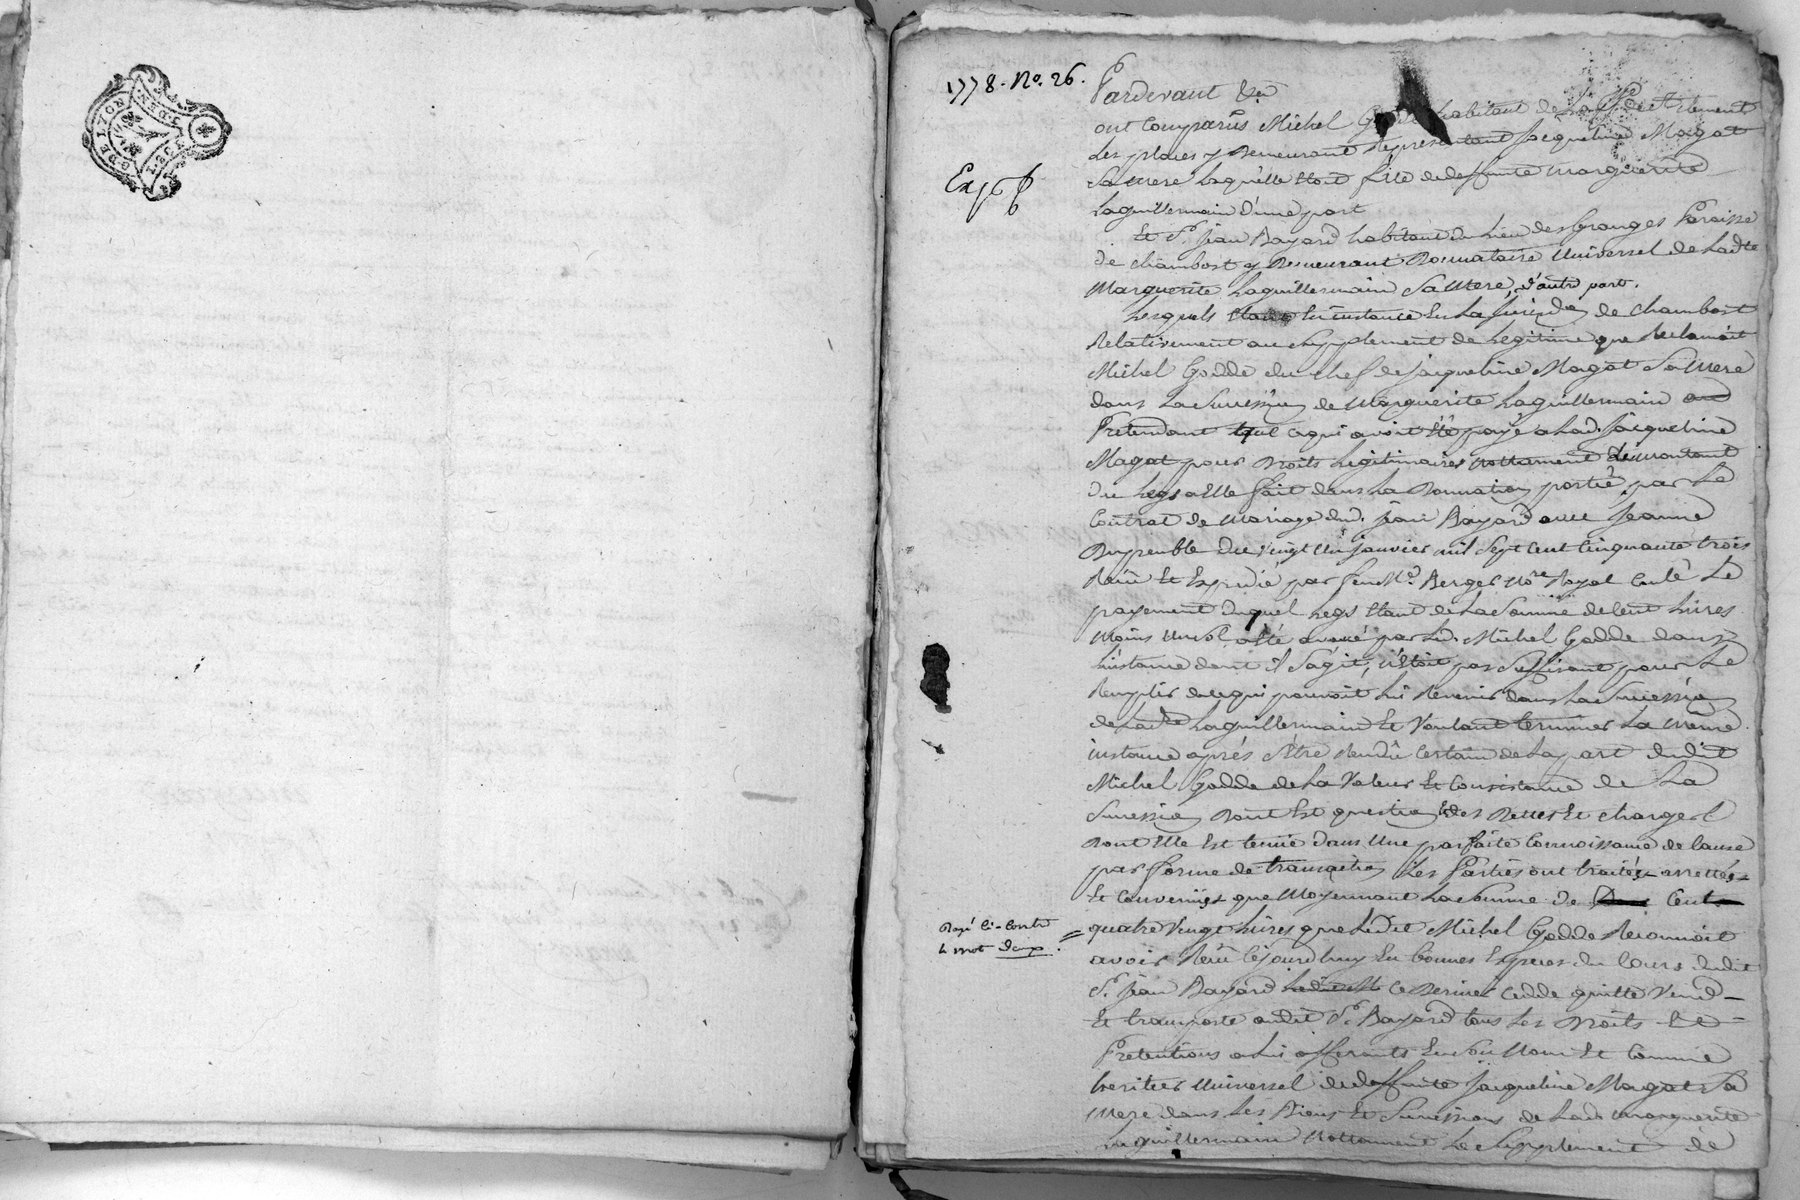 GDE LYON
1778. No. 26.
Pardevant &a
ont Comparus Michel habitant de Clement
Les places y Demeurant Representant Jacqueline Magat
Sa Mere Laquelle Etoit fille de deffunte Marguerite
Laguillermain d'une part
Exp
Et Sr. Jean Bayard habitant du Lieu des Granges Paroisse
de Chambost y Demeurant Donnataire Universel de Ladte
Marguerite Laguillermain Sa Mere, d'autre part.
Lesquels Etant En instance En La Jurisdon de Chambost
Relativement au Supplement de Legitime que Reclamoit
Michel Godde du chef de Jacqueline Magat Sa Mere
dans La Succession de Marguerite Laguillermain
Pretendant que ce qui avoit Eté payé a Lad. Jacqueline
Magat pour Droits Legitimaires Nottament Le montant
du Legs a Elle fait dans La Donnation portée par Le
Contrat de Mariage dud. Jean Bayard avec Jeanne
Dupeuble du vingt un janvier mil Sept Cent Cinquante trois
Recu Et Expedié par feu Me. Berger Nore Royal Le
payement duquel Legs Etant de La Somme de Cent Livres
Moins un sol a Eté avoué par Led. Michel Godde dans
L'instance dont il S'agit, n'étoit pas Suffisant pour Le
Remplir de ce qui pouvoit Lui Revenir dans La Succession
de Ladte Laguillermain Et Voulant Terminer La meme
instance aprés s'Etre Rendû Certain de La part dudit
Michel Godde de La Valeur Et Consistance de La
Succession Dont Est question des Dettes Et charges
Dont Elle Est tenüe dans Une parfaite Connoissance de Cause
par forme de transaction Les Parties ont traitées arrettées
Et Convenües que Moyennant La Somme de Cent
Rayé Ci-Contre
le mot deux.
quatre Vingt Livres que Ledit Michel Godde Reconnoit
avoir Recû Cejourd'huy En bonnes Especes du Cours dudit
Sr. Jean Bayard Ce Dernier Cedde quitte Vend
Et transporte audit Sr. Bayard tous Les Droits Et
Pretentions a Lui afferants En Son Nom Et Comme
heritier Universel de deffunte Jacqueline Magat Sa
Mere dans Les Biens Et Successions de Lad. Marguerite
Laguillermain Nottamment Le Supplement de